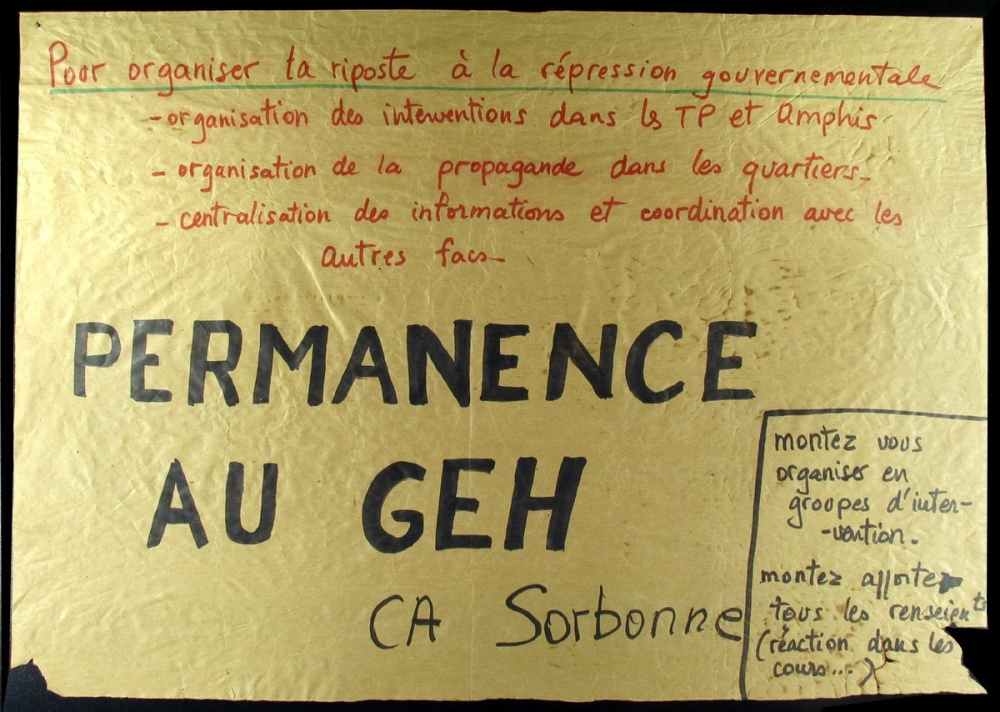 Pour organiser la riposte à la répression gouvernementale
- organisation des interventions dans les TP et Amphis
- organisation de la propagande dans les quartiers -
- centralisation des informations et coordination avec les
autres facs -
PERMANENCE
AU GEH
CA Sorbonne
montez vous
organiser en
groupes d'inter-
-vention.
montez apporter
tous les renseign ts
(réaction dans les
cours...)